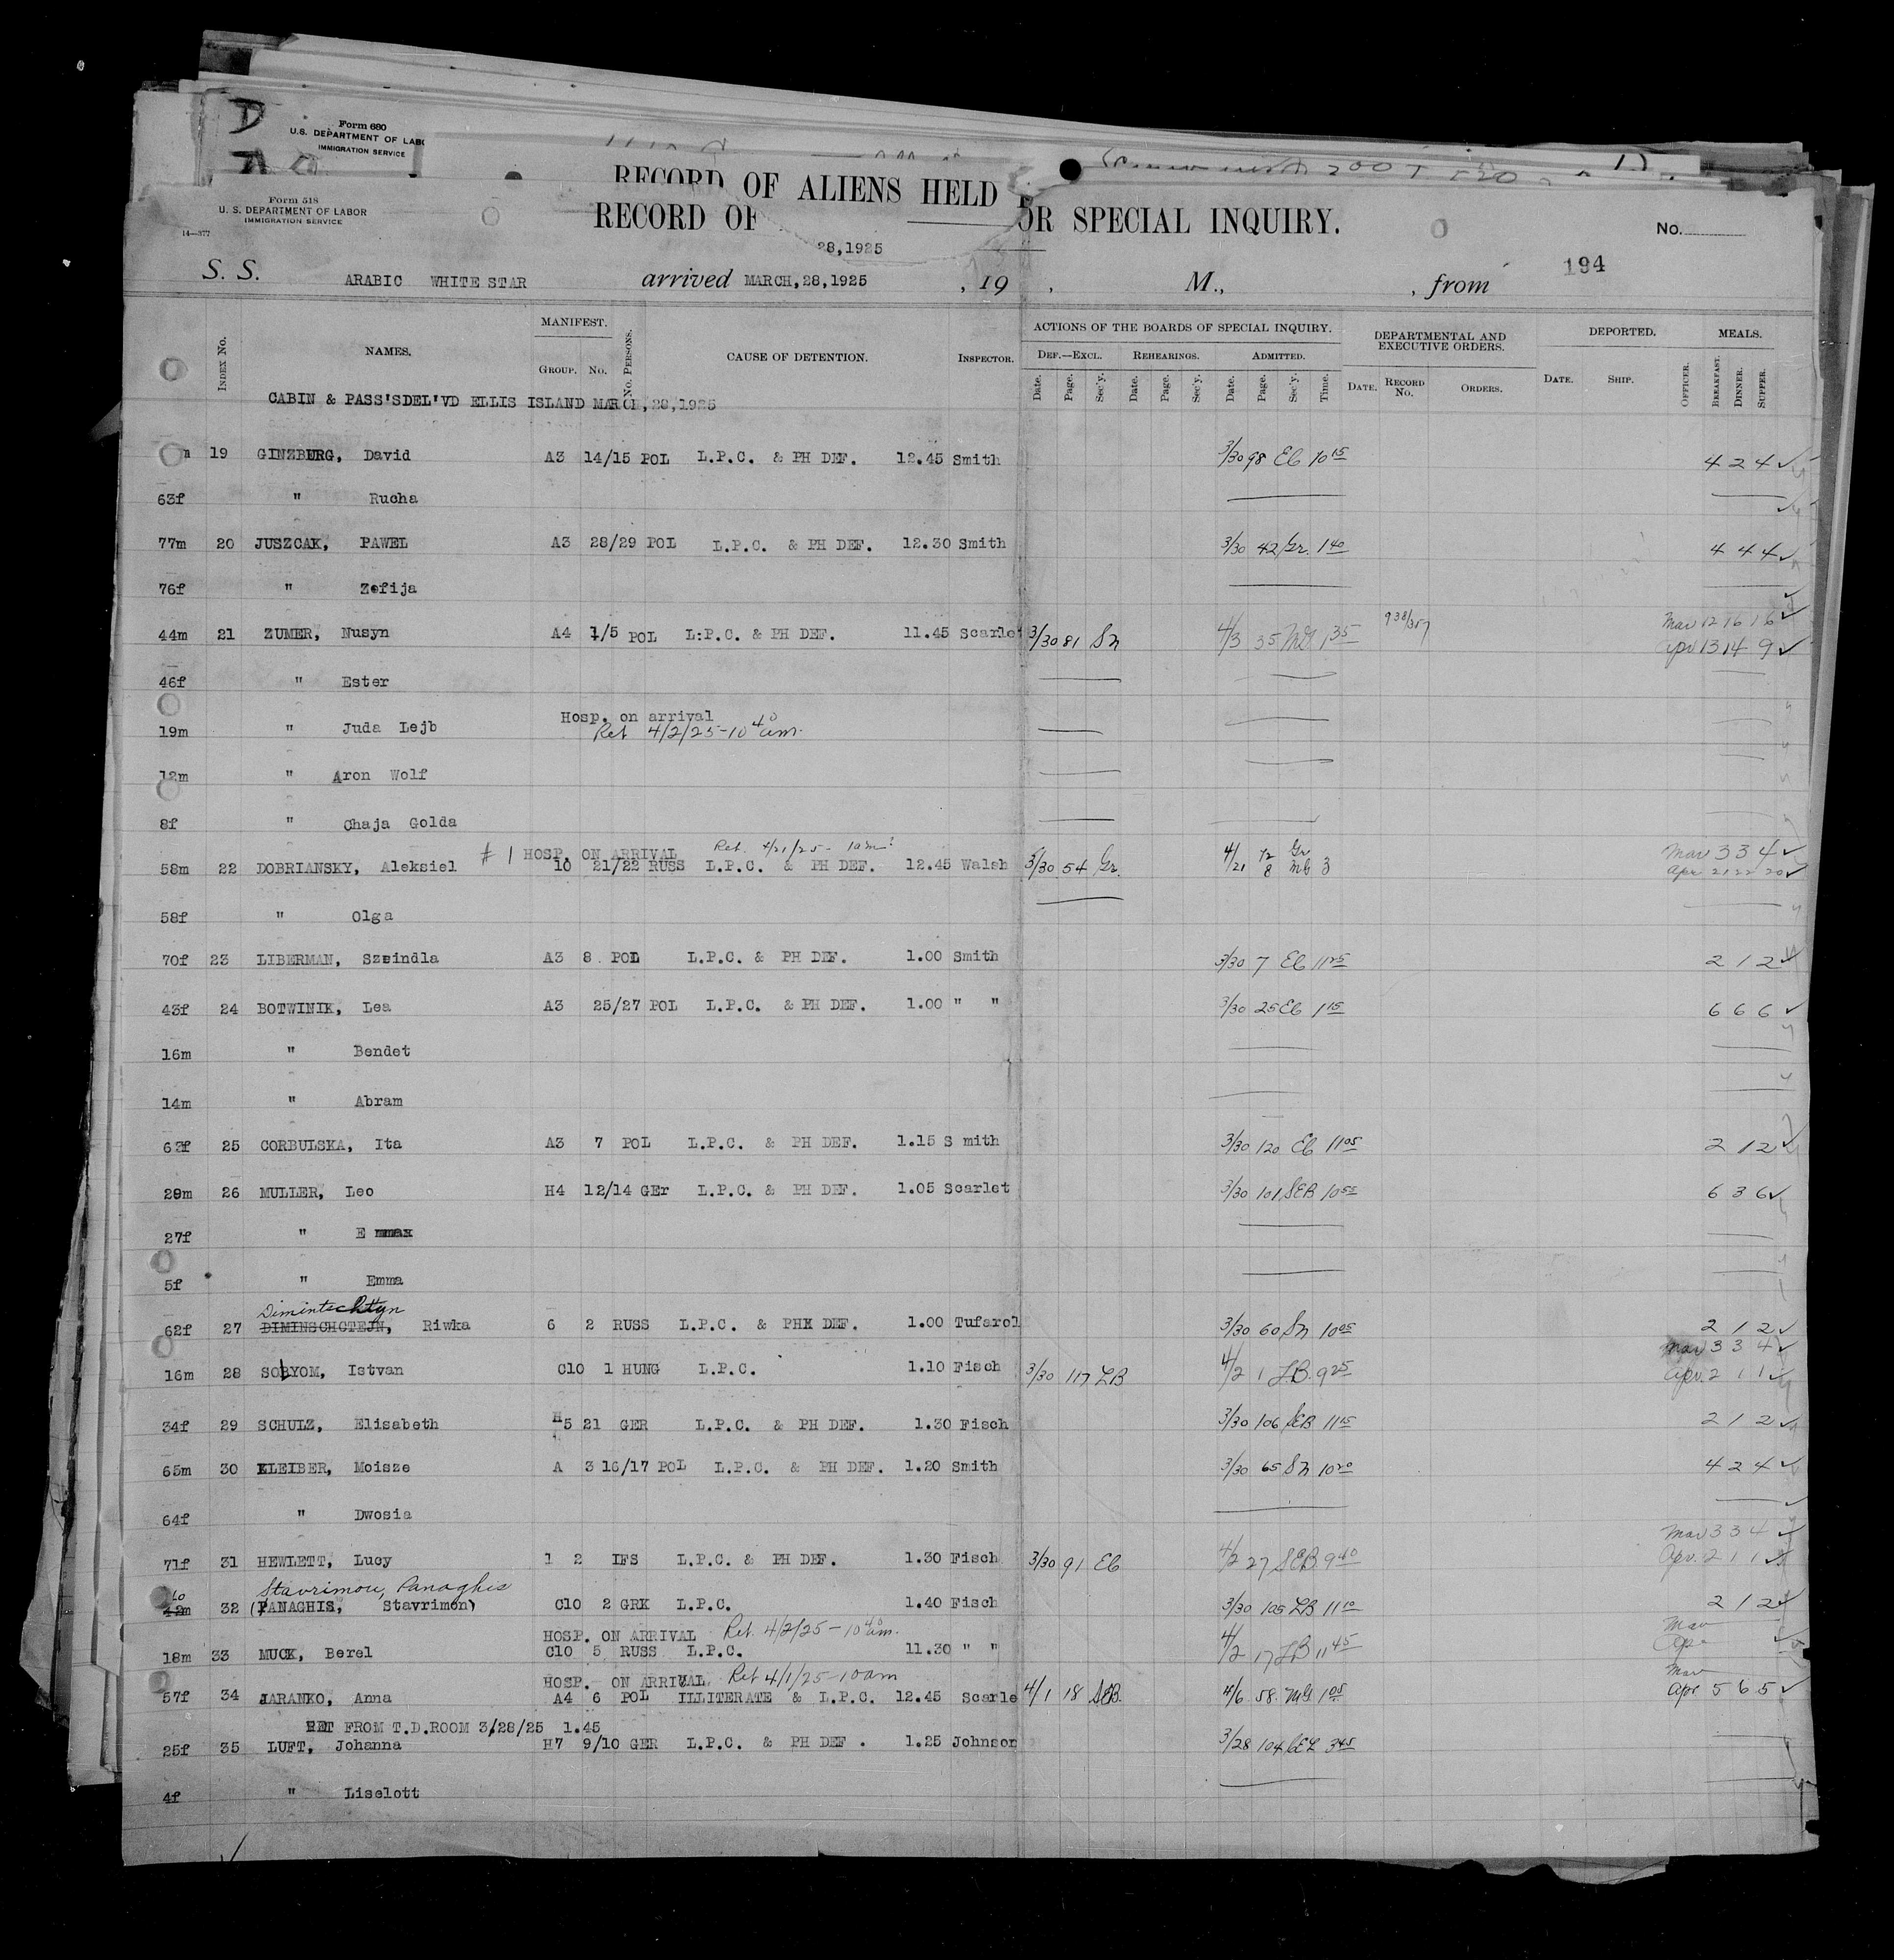 D
Form 680
U.S. DEPARTMENT OF LAB
IMMIGRATION SERVICE
RECORD OF ALIENS HELD
Form 518
U. S. DEPARTMENT OF LABOR
IMMIGRATION SERVICE
14—377
RECORD OF OR SPECIAL INQUIRY.
No.
28,1925
194
S. S. ARABIC WHITE STAR arrived MARCH,28,1925 , 19 , M., , from
Index No. NAMES. MANIFEST. Group. No. No. Persons. CAUSE OF DETENTION. Inspector. ACTIONS OF THE BOARDS OF SPECIAL INQUIRY. DEPARTMENTAL AND EXECUTIVE ORDERS. DEPORTED. MEALS.
Def.—Excl. Rehearings. Admitted.
Date. Page. Sec'y. Date. Page. Sec'y. Date. Page. Sec'y. Time. Date. Record No. Orders. Date. Ship. Officer. Breakfast. Dinner. Supper.
CABIN & PASS'SDEL'VD ELLIS ISLAND MARCH, 28,1925
19 GINZBURG, David A3 14/15 POL L.P.C. & PH DEF. 12.45 Smith 3/30 98 EC 10 15 4 2 4 ✓
63f " Rucha
77m 20 JUSZCAK, PAWEL A3 28/29 POL L.P.C. & PH DEF. 12.30 Smith 3/30 42 Gr. 1 40 4 4 4 ✓
76f " Zofija
44m 21 ZUMER, Nusyn A4 1/5 POL L:P.C. & PH DEF. 11.45 Scarlet 3/30 81 Sn 4/3 35 MG 1 35 938/357 Mar 12 16 16 ✓
Apr 13 14 9 ✓
46f " Ester
19m " Juda Lejb Hosp. on arrival
Ret 4/2/25-10 40 am.
12m " Aron Wolf
8f " Chaja Golda
#1 HOSP. ON ARRIVAL Ret. 4/21/25 -
58m 22 DOBRIANSKY, Aleksiel 10 21/22 RUSS L.P.C. & PH DEF. 12.45 Walsh 3/30 54 Gr. 4/21 12 Gr 8 3 Mar 3 3 4 ✓
Apr 21 22 20 ✓
58f " Olga
70f 23 LIBERMAN, Szeindla A3 8 POL L.P.C. & PH DEF. 1.00 Smith 3/30 7 EC 11 25 2 1 2 ✓
43f 24 BOTWINIK, Lea A3 25/27 POL L.P.C. & PH DEF. 1.00 " " 3/30 25 EC 1 15 6 6 6 ✓
16m " Bendet
14m " Abram
25 CORBULSKA, Ita A3 7 POL L.P.C. & PH DEF. 1.15 S mith 3/30 120 EC 11 05 2 1 2 ✓
29m 26 MULLER, Leo H4 12/14 GEr L.P.C. & PH DEF. 1.05 Scarlet 3/30 101 SEB 10 55 6 3 6 ✓
27f " E mmax
5f " Emma
Dimintechtyn
62f 27 DIMINSCHCTEJN, Riwka 6 2 RUSS L.P.C. & PHX DEF. 1.00 Tufarol 3/30 60 Sn 10 05 2 1 2 ✓
Mar 3 3 4 ✓
16m 28 SOLYOM, Istvan C10 1 HUNG L.P.C. 1.10 Fisch 3/30 117 LB 4/2 1 LB. 9 25 Apr. 2 1 1 ✓
34f 29 SCHULZ, Elisabeth H5 21 GER L.P.C. & PH DEF. 1.30 Fisch 3/30 106 SEB 11 15 2 1 2 ✓
65m 30 KLEIBER, Moisze A 3 16/17 POL L.P.C. & PH DEF. 1.20 Smith 3/30 65 Sn 10 20 4 2 4 ✓
64f " Dwosia
Mar 3 3 4 ✓
71f 31 HEWLETT, Lucy 1 2 IFS L.P.C. & PH DEF. 1.30 Fisch 3/30 91 EC 4/2 27 SEB 9 40 Apr. 2 1 1 ✓
Stavrimou, Panaghis
42m 32 (PANAGHIS, Stavrimon) C10 2 GRK L.P.C. 1.40 Fisch 3/30 105 LB 11 10 2 1 2 ✓
HOSP. ON ARRIVAL Ret. 4/2/25-10 40 am. Mar
18m 33 MUCK, Berel C10 5 RUSS L.P.C. 11.30 " " 4/2 17 LB 11 45 Apr ✓
HOSP. ON ARRIVAL Ret 4/1/25-10am Mar
57f 34 JARANKO, Anna A4 6 POL ILLITERATE & L.P.C. 12.45 Scarle 4/1 18 SEB. 4/6 58. MG 1 05 Apr 5 6 5 ✓
RET FROM T.D.ROOM 3/28/25 1.45
25f 35 LUFT, Johanna H7 9/10 GER L.P.C. & PH DEF . 1.25 Johnson 3/28 104 3 45
4f " Liselott